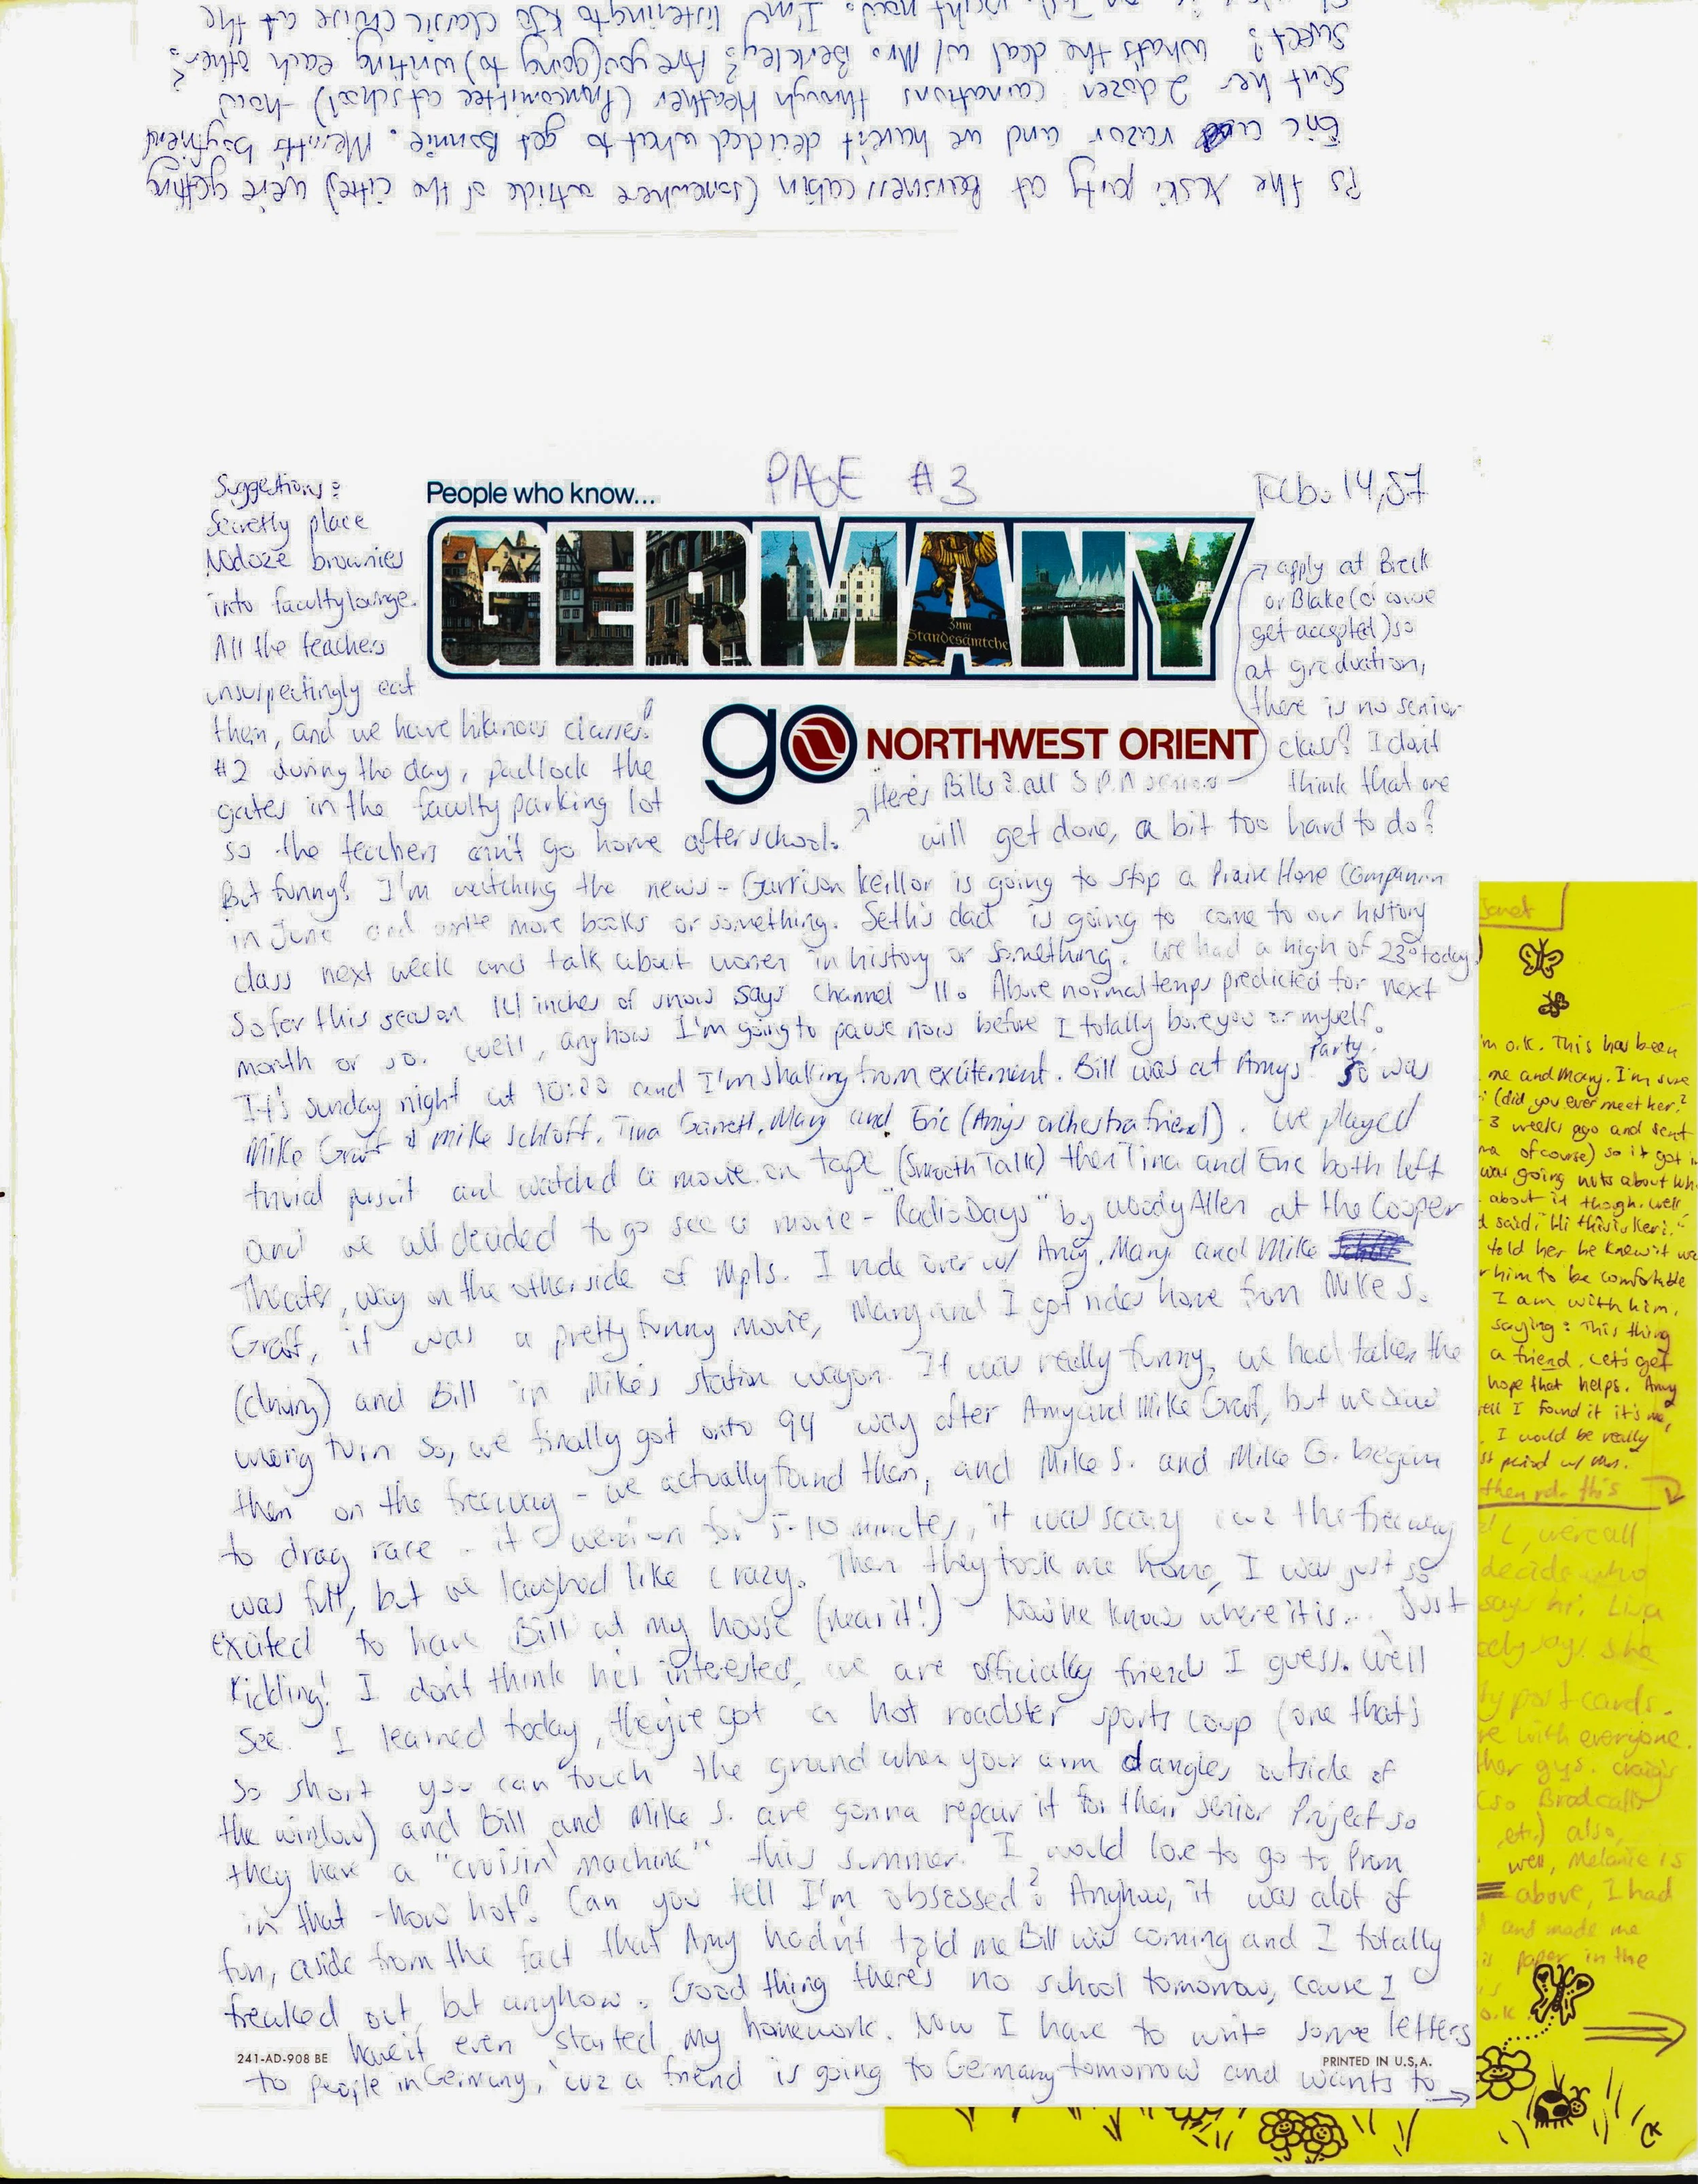 PS the Xcski party at Bearisness cabin (somewhere outside of the cities) we're getting
Eric a razor and we haven't decided what to get Bonnie. Merritts boyfriend
sent her 2 dozen carnations through Heather (Prom committee at school) -how
sweet! whats the deal w/ Mrs. Berkley? Are you (going to) writing each other?
I'm listening to KJO classic cruise at the
PAGE #3
Feb. 14, 87
People who know...
GERMANY
Zum
Standesämtche
go NORTHWEST ORIENT
Suggestions:
Secretly place
Nodoze brownies
into faculty lounge.
All the teachers
unsuspectingly eat
them, and we have hilarious classes!
#2 during the day, padlock the
gates in the faculty parking lot
so the teachers can't go home after school.
Here's Bill's: all S.P.A seniors
apply at Breck
or Blake (
get accepted) so
at graduation,
there is no senior
class? I don't
think that one
will get done, a bit too hard to do?
But funny! I'm watching the news - Garrison Keillor is going to stop a Praire Home Companion
in June and write more books or something. Seth's dad is going to come to our history
class next week and talk about women in history or something. We had a high of 23° today
So fer this season 14 inches of snow says channel 11. Above normal temps predicted for next
month or so. Well, anyhow I'm going to pause now before I totally bore you or myself.
It's sunday night at 10:20 and I'm shaking from excitement. Bill was at Amys Party. So was
Mike Graff & Mike Schloff, Tina Garrett, Mary and Eric (Amy's orchestra friend). We played
trivial pursuit and watched a movie on tape (Smooth Talk) then Tina and Eric both left
and we all decided to go see a movie - "Radio Days" by Woody Allen at the Cooper
Theater, way on the otherside of Mpls. I rode over w/ Amy, Mary and Mike
Graff, it was a pretty funny movie, Mary and I got rides home from Mike S.
(driving) and Bill in Mike's station wagon. It was really funny, we had taken the
wrong turn so, we finally got onto 94 way after Amy and Mike Graff, but we saw
them on the freeway - we actually found them, and Mike S. and Mike G. began
to drag race - it went on for 5-10 minutes, it was scary cuz the freeway
was full, but we laughed like crazy. Then they took me home, I was just so
excited to have Bill at my house (near it!) Now he knows where it is... Just
Kidding! I don't think he's interested, we are officially friends I guess. We'll
see. I learned today, they've got a hot roadster sports coup (one that's
so short you can touch the ground when your arm dangles outside of
the window) and Bill and Mike S. are gonna repair it for their senior Project so
they have a "cruisin' machine" this summer. I would love to go to Prom
in that - how hot! Can you tell I'm obsessed? Anyhow, it was alot of
fun, aside from the fact that Amy hadn't told me Bill was coming and I totally
freaked out, but anyhow. Good thing there's no school tomorrow, cause I
haven't even started my homework. Now I have to write some letters
to people in Germany, cuz a friend is going to Germany tomorrow and wants to
241-AD-908 BE
PRINTED IN U.S.A.
Janet
'm o.k. This has been
me and Mary. I'm sure
(did you ever meet her?
3 weeks ago and sent
of course) so it got
was going nuts about
about it though. Well
said, "Hi this is Keri."
told her he knew it
him to be comfortable
I am with him,
saying: This thing
a friend. Let's get
hope that helps. Amy
I found it it's me,
I would be really
period w/
then this
, we're all
decide who
says hi. Lisa
says she
post cards.
with everyone.
guys. Craig's
(so Brad calls
, etc.) also,
well, Melanie is
above, I had
and made me
paper in the
o.k.